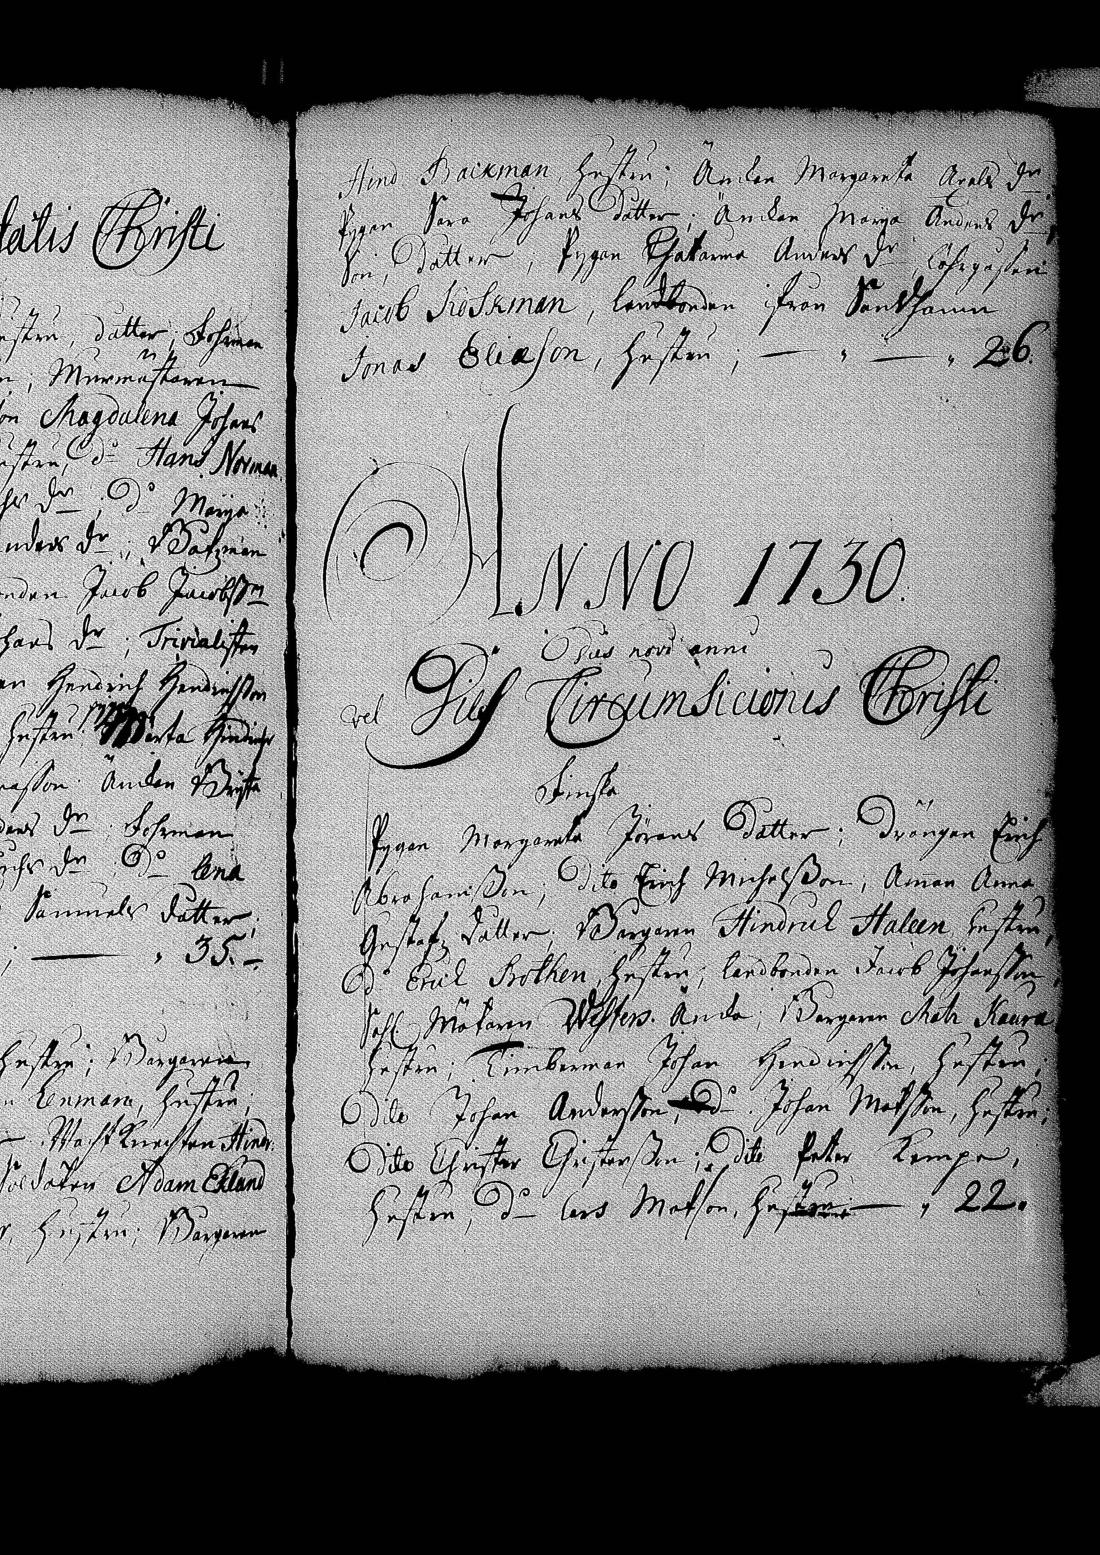 talis Christi
hustru, datter, Fohrman
; Murmästaren
Magdalena Johans
hustru, do Hans Norman
dr ; Do Marja
Anders dr ;
Jacob Jacobsson
dr ; Trivialisten
Hendrich Hendrichsson
hustru Marta
Änckan Brijta
dr ; Fohrman
dr Do Lena
Samuels datter ;
; — 35. —
hustru ; Borgaren
Enman, hustru ;
Hind.
Soldaten Adam Eklund
hustru ; Borgaren
Hind Backman, hustru ; Änckan Margareta Axels dr
Pygan Sara Johans datter ; Änckan Marja Anders dr
Son, datter, Pygan Chatarina Anders dr,
Jacob Koskman, landbonden ifrån Sandhamn
Jonas Eliason, hustru ; — „ — „ 26.
ANNO 1730.
Dies novi anni
vel Dies Circumsicionis Christi
Finska
Pygan Margareta Jörans datter ; Drängen Erich
Abrahamsson ; Dito Erich Michelsson ; Amman Anna
Gustafz datter ; Borgaren Hindrick Haleen, hustru,
Do Erick Bothen, hustru ; landbonden Jacob Johansson
Sahl. Målaren Westers. Änckia ; Borgaren Mats Kaura
hustru ; Timberman Johan Hendrichsson, hustru ;
Dito Johan Andersson, do. Johan Matsson, hustru ;
Dito Christer Christersson ; dito Petter Kempe,
hustru, do Lars Matsson, hustru ; — „ 22.